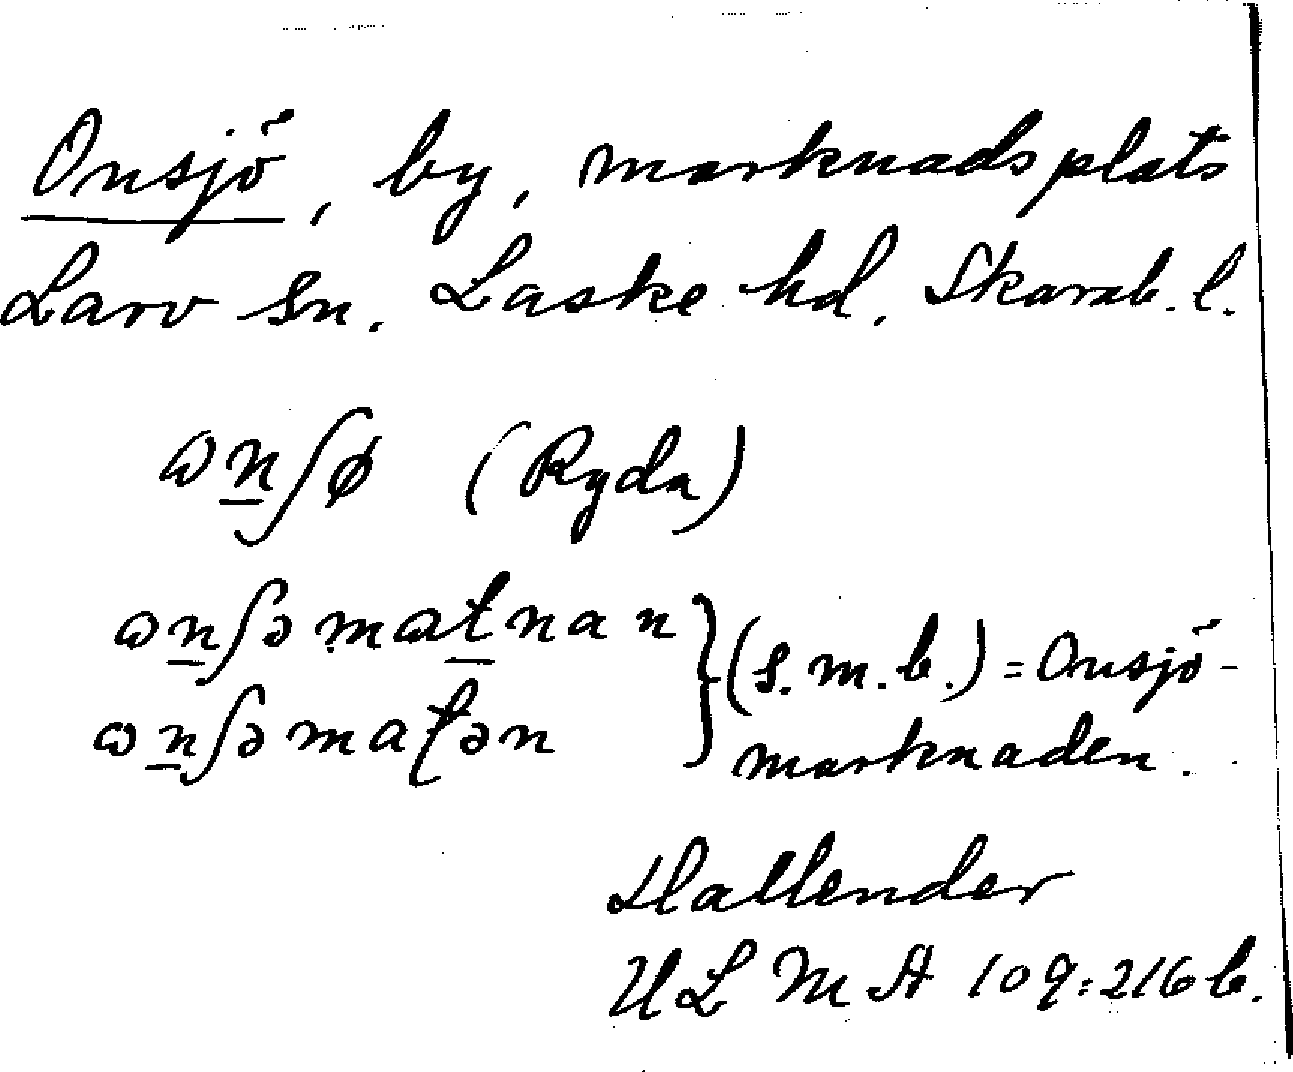 Onsjö, by, marknadsplats
Larv sn. Laske hd. Skarab. l.
ωn̲ʃø (Ryda)
ωn̲ʃə mat̲nan
ωn̲ʃə matən
} (s.m.b.) = Onsjö-
marknaden.
Hallender
ULMA 109:216 b.